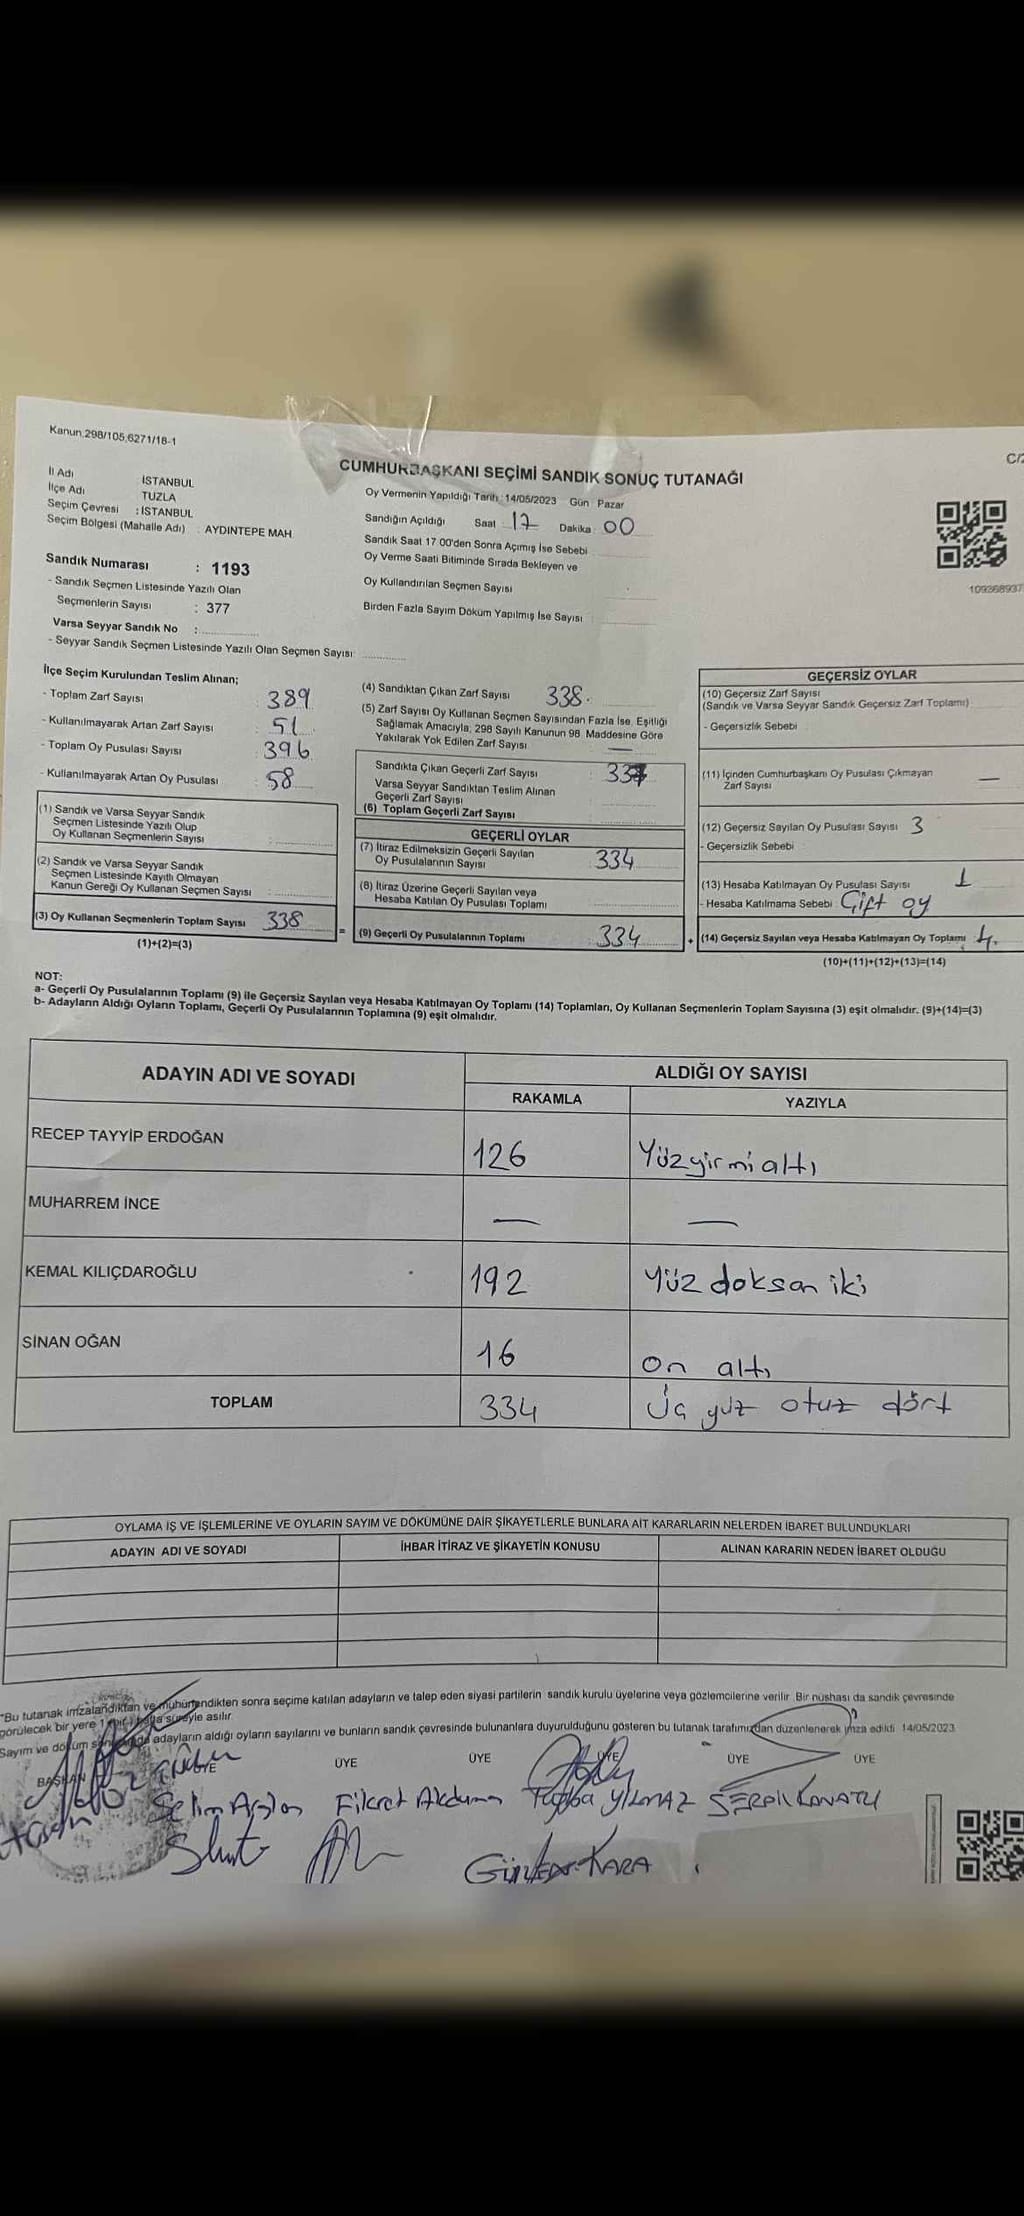 Kanun.298/105,6271/18-1
C/2
CUMHURBAŞKANI SEÇİMİ SANDIK SONUÇ TUTANAĞI
İl Adı İSTANBUL
İlçe Adı TUZLA
Seçim Çevresi : İSTANBUL
Seçim Bölgesi (Mahalle Adı) : AYDINTEPE MAH
Oy Vermenin Yapıldığı Tarih : 14/05/2023 Gün Pazar
Sandığın Açıldığı Saat 17 Dakika 00
Sandık Saat 17 00'den Sonra Açımış İse Sebebi
Oy Verme Saati Bitiminde Sırada Bekleyen ve
Oy Kullandırılan Seçmen Sayısı
Birden Fazla Sayım Döküm Yapılmış İse Sayısı
109268937
Sandık Numarası : 1193
- Sandık Seçmen Listesinde Yazılı Olan
Seçmenlerin Sayısı : 377
Varsa Seyyar Sandık No :
- Seyyar Sandık Seçmen Listesinde Yazılı Olan Seçmen Sayısı:
İlçe Seçim Kurulundan Teslim Alınan;
- Toplam Zarf Sayısı 389
- Kullanılmayarak Artan Zarf Sayısı 51
- Toplam Oy Pusulası Sayısı 396
- Kullanılmayarak Artan Oy Pusulası : 58
(1) Sandık ve Varsa Seyyar Sandık
Seçmen Listesinde Yazılı Olup
Oy Kullanan Seçmenlerin Sayısı
(2) Sandık ve Varsa Seyyar Sandık
Seçmen Listesinde Kayıtlı Olmayan
Kanun Gereği Oy Kullanan Seçmen Sayısı :
(3) Oy Kullanan Seçmenlerin Toplam Sayısı 338
(1)+(2)=(3)
(4) Sandıktan Çıkan Zarf Sayısı 338
(5) Zarf Sayısı Oy Kullanan Seçmen Sayısından Fazla İse, Eşitliği
Sağlamak Amacıyla, 298 Sayılı Kanunun 98. Maddesine Göre
Yakılarak Yok Edilen Zarf Sayısı —
Sandıkta Çıkan Geçerli Zarf Sayısı
Varsa Seyyar Sandıktan Teslim Alınan
Geçerli Zarf Sayısı
(6) Toplam Geçerli Zarf Sayısı
GEÇERLİ OYLAR
(7) İtiraz Edilmeksizin Geçerli Sayılan
Oy Pusulalarının Sayısı 334
(8) İtiraz Üzerine Geçerli Sayılan veya
Hesaba Katılan Oy Pusulası Toplamı
=
(9) Geçerli Oy Pusulalarının Toplamı : 334
GEÇERSİZ OYLAR
(10) Geçersiz Zarf Sayısı
(Sandık ve Varsa Seyyar Sandık Geçersiz Zarf Toplamı)
- Geçersizlik Sebebi
(11) İçinden Cumhurbaşkanı Oy Pusulası Çıkmayan
Zarf Sayısı —
(12) Geçersiz Sayılan Oy Pusulası Sayısı 3
- Geçersizlik Sebebi
(13) Hesaba Katılmayan Oy Pusulası Sayısı 1
- Hesaba Katılmama Sebebi : Çift oy
+ (14) Geçersiz Sayılan veya Hesaba Katılmayan Oy Toplamı 4.
(10)+(11)+(12)+(13)=(14)
NOT:
a- Geçerli Oy Pusulalarının Toplamı (9) ile Geçersiz Sayılan veya Hesaba Katılmayan Oy Toplamı (14) Toplamları, Oy Kullanan Seçmenlerin Toplam Sayısına (3) eşit olmalıdır. (9)+(14)=(3)
b- Adayların Aldığı Oyların Toplamı, Geçerli Oy Pusulalarının Toplamına (9) eşit olmalıdır.
ADAYIN ADI VE SOYADI ALDIĞI OY SAYISI
RAKAMLA YAZIYLA
RECEP TAYYİP ERDOĞAN 126 Yüzyirmi altı
MUHARREM İNCE — —
KEMAL KILIÇDAROĞLU 192 Yüz doksan iki
SİNAN OĞAN 16 on altı
TOPLAM 334 Üç yüz otuz dört
OYLAMA İŞ VE İŞLEMLERİNE VE OYLARIN SAYIM VE DÖKÜMÜNE DAİR ŞİKAYETLERLE BUNLARA AİT KARARLARIN NELERDEN İBARET BULUNDUKLARI
ADAYIN ADI VE SOYADI İHBAR İTİRAZ VE ŞİKAYETİN KONUSU ALINAN KARARIN NEDEN İBARET OLDUĞU
"Bu tutanak imzalandıktan ve mühürlendikten sonra seçime katılan adayların ve talep eden siyasi partilerin sandık kurulu üyelerine veya gözlemcilerine verilir .Bir nüshası da sandık çevresinde
görülecek bir yere 1 hafta süreyle asılır
Sayım ve döküm adayların aldığı oyların sayılarını ve bunların sandık çevresinde bulunanlara duyurulduğunu gösteren bu tutanak tarafımızdan düzenlenerek imza edildi 14/05/2023
BAŞKAN ÜYE ÜYE ÜYE ÜYE ÜYE
Selim Arslan Fikret Akduman Tuğba YILMAZ
KARA